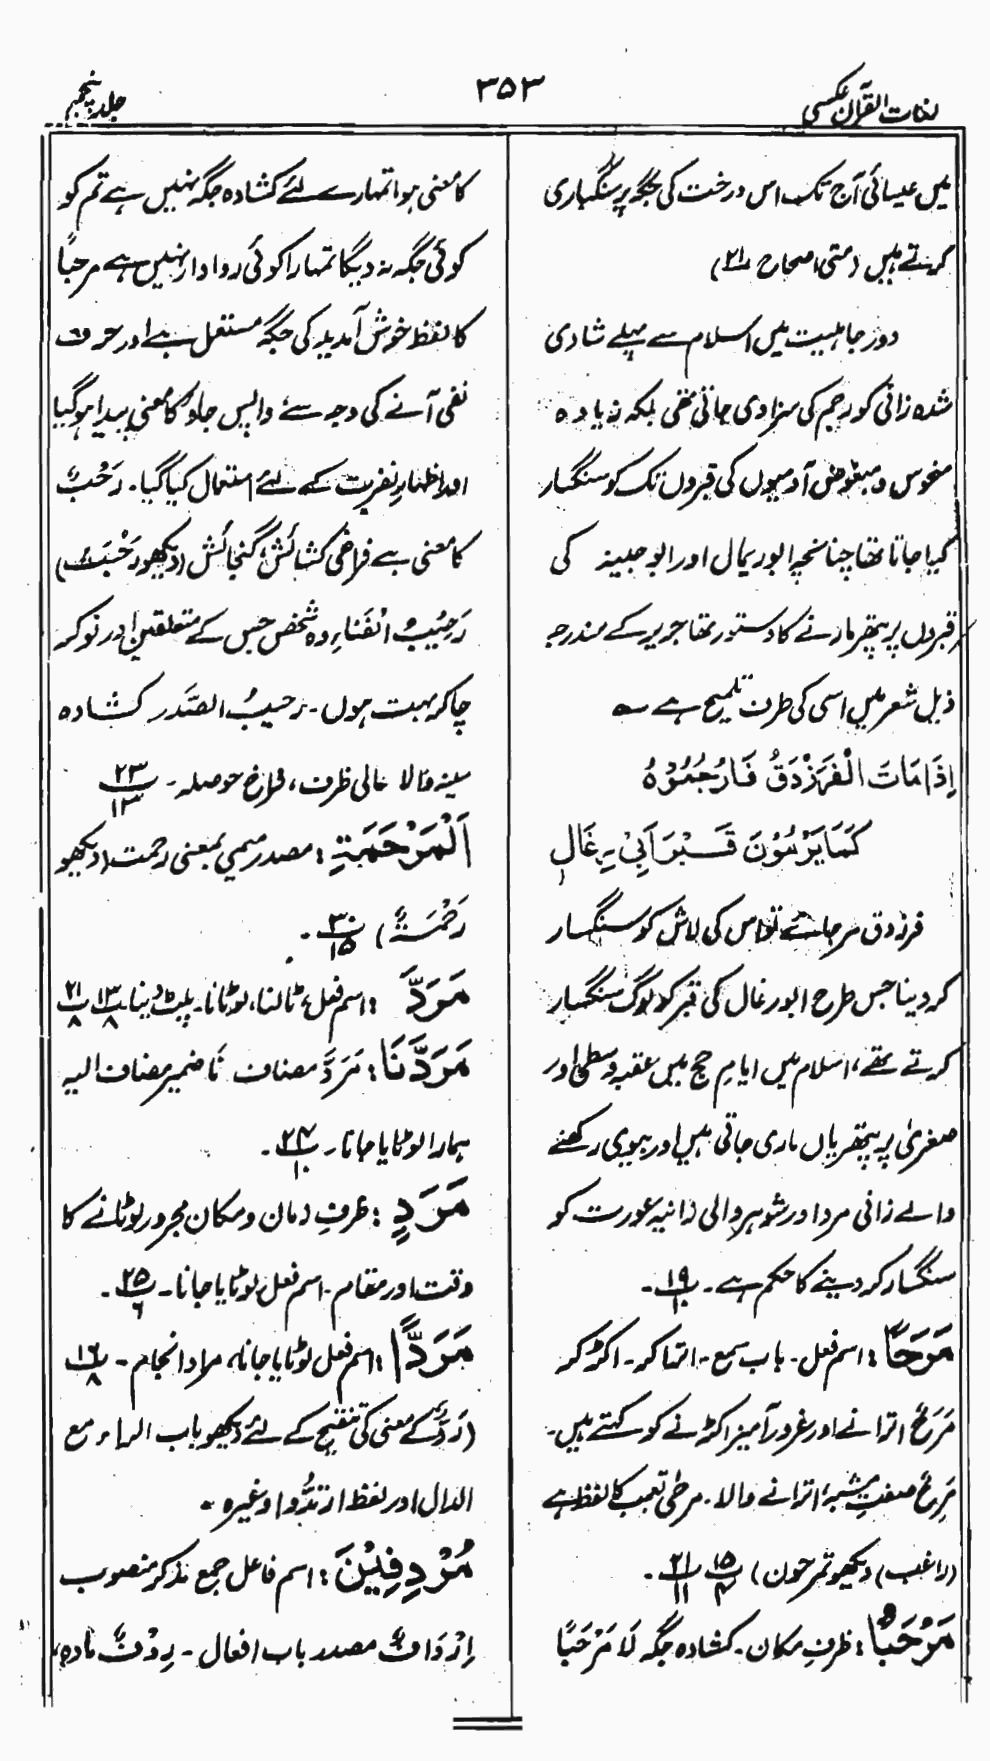 لغات القرآن عکسی
۳۵۳
جلد پنجم
میں عیسائی آج تک اس درخت کی جگہ پر سنگباری
کرتے ہیں (متی اصحاح ۲۱)
دور جاہلیت میں اسلام سے پہلے شادی
شدہ زانی کو رجم کی سزا دی جاتی تھی بلکہ زیادہ
منحوس و مبغوض آدمیوں کی قبروں تک کو سنگسار
کیا جاتا تھا چنانچہ ابو رغال اور ابو کی
قبروں پر پتھر مارنے کا دستور تھا جریر کے مندرجہ
ذیل شعر میں اسی کی طرف تلمیح ہے ؎
اِذَا مَاتَ الْفَرَزْدَقُ فَارْجُمُوْہُ
کَمَا یَرْمُوْنَ قَبْرَ اَبِیْ رِغَالِ
فرزدق مر جائے تو اس کی لاش کو سنگسار
کر دینا جس طرح ابو رغال کی قبر کو لوگ سنگسار
کرتے تھے، اسلام میں ایام حج میں عقبہ وسطیٰ اور
صغریٰ پر پتھریاں ماری جاتی ہیں اور بیوی رکھنے
والے زانی مرد اور شوہر والی زانیہ عورت کو
سنگسار کر دینے کا حکم ہے۔ ۱۹/۱۰۔
مَرَحًا : اسم فعل۔ باب سمع۔ اترا کر۔ اکڑ کر
مَرَحٌ اترانے اور غرور آمیز اکڑنے کو کہتے ہیں۔
مَرِحٌ صفت مشبہ، اترانے والا۔ مرحیٰ تعجب کا لفظ ہے
(راغب) دیکھو تمرحون) ۱۵/۴ ۲۱/۱۱۔
مَرْحَبًا : ظرف مکان۔ کشادہ جگہ لَا مَرْحَبًا
کا معنی ہوا تمہارے لئے کشادہ جگہ نہیں ہے تم کو
کوئی جگہ نہ دیگا تمہارا کوئی روادار نہیں ہے مرحبًا
کا لفظ خوش آمدید کی جگہ مستعمل ہے اور حرف
نفی آنے کی وجہ سے واپس جاؤ کا معنی پیدا ہو گیا
اور اظہار نفرت کے لئے استعمال کیا گیا۔ رَحْبٌ
کا معنی ہے فراخی کشائش، گنجائش (دیکھو رَحُبَتْ)
رَحِیْبُ الْفِنَاءِ وہ شخص جس کے متعلقین اور نوکر
چاکر بہت ہوں۔ رَحِیْبُ الصَّدْرِ کشادہ
سینہ والا عالی ظرف، فراخ حوصلہ۔ ۲۳/۱۳
اَلْمَرْحَمَةِ : مصدر میمی بمعنی رحمت (دیکھو
رَحْمَةٌ) ۳۰/۱۵۔
مَرَدَّ : اسم فعل، ٹالنا، لوٹانا۔ پلٹ دینا ۱۳/۸ ۲۱/۸
مَرَدَّنَا : مَرَدَّ مضاف نَا ضمیر مضاف الیہ
ہمارا لوٹایا جانا۔ ۲۴/۱۰۔
مَرَدٍّ : ظرف زمان و مکان مجرور لوٹانے کا
وقت اور مقام۔ اسم فعل لوٹایا جانا۔ ۲۵/۶۔
مَرَدًّا : اسم فعل لوٹایا جانا، مراد انجام۔ ۱۶/۸
(رَدٌّ کے معنی کی تنقیح کے لئے دیکھو باب الراء مع
الدال اور لفظ ارتدُّوا وغیرہ۔
مُرْدِفِیْنَ : اسم فاعل جمع مذکر منصوب
اِرْدَافٌ مصدر باب افعال۔ رِدْفٌ مادہ،